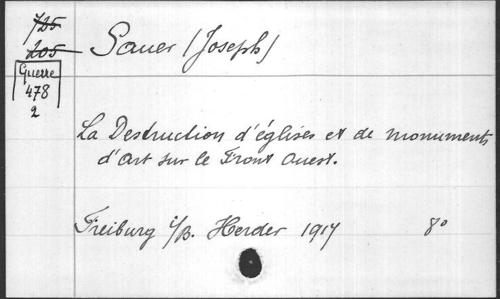 725
205
Sauer (Joseph)
Guerre
478
2
La Destruction d'églises et de monuments
d'art sur le Front Ouest.
Freiburg i/B. Herder 1917 8°